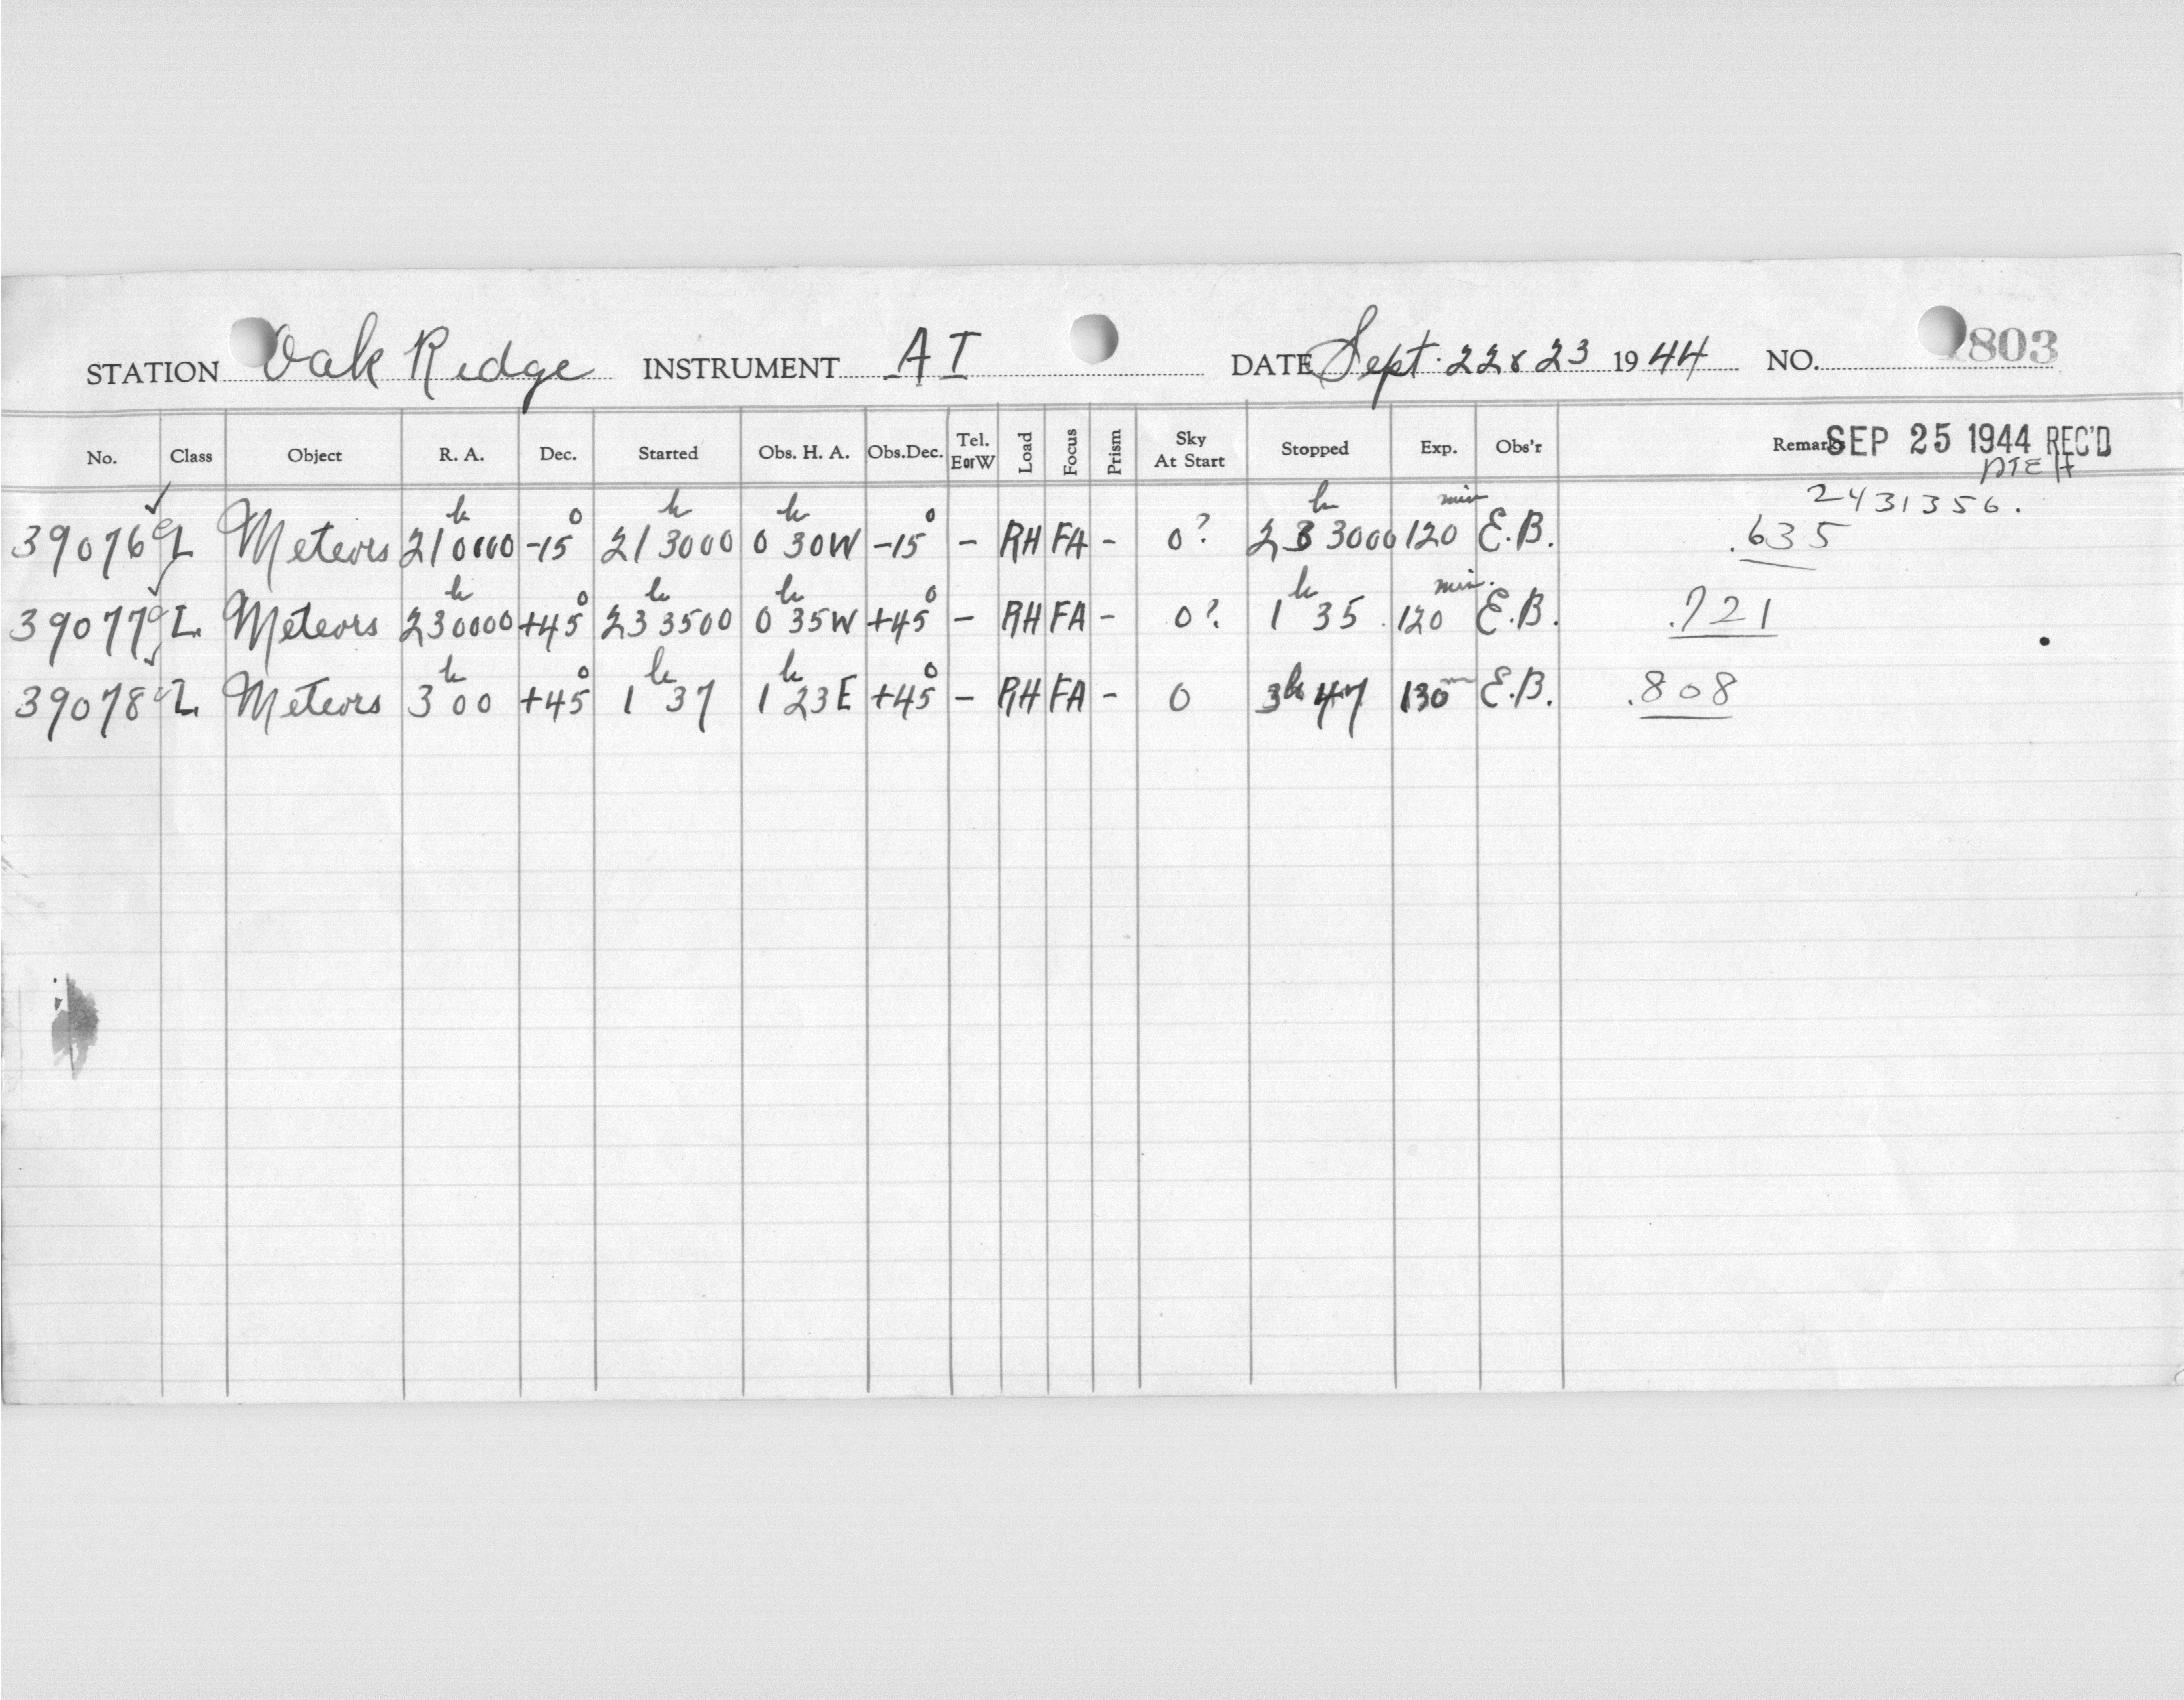 STATION Oak Ridge INSTRUMENT AI DATE Sept. 22 & 23 1944 NO. 803
No. Class Object R. A. Dec. Started Obs. H. A. Obs.Dec. Tel. EorW Load Focus Prism Sky At Start Stopped Exp. Obs'r Remarks SEP 25 1944 REC'D
2431356.
39076 L Meteors 21h 0000 -15° 21h 3000 0h 30W -15° - RH FA - 0? 23h 3000 120 min E.B. .635
39077 L. Meteors 23h 0000 +45° 23h 3500 0h 35W +45° - RH FA - 0? 1h 35 120 min. E.B. .721
39078 L. Meteors 3h 00 +45° 1h 37 1h 23E +45° - RH FA - 0 3h 47 130m E.B. .808